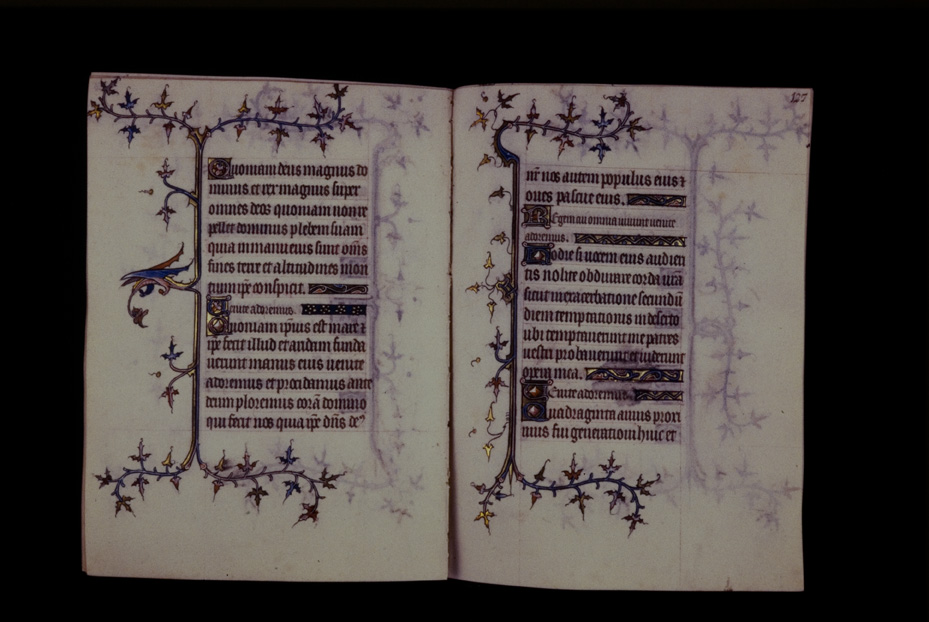 Quoniam deus magnus do
minus et rex magnus super
omnes deos quoniam non re
pellet dominus plebem suam
quia in manu eius sunt om̃s
fines terre et altitudines mon
tium ip̃e conspicit.
Venite adoremus.
Quoniam ip̃ius est mare ⁊
ip̃e fecit illud et aridam funda
uerunt manus eius uenite
adoremus et procidamus ante
deum ploremus corã domino
qui fecit nos quia ip̃e dñs de⁹
127
nr̃ nos autem populus eius ⁊
oues pascue eius.
Regem cui omnia uiuunt uenite
adoremus.
Hodie si uocem eius audieri
tis nolite obdurare corda ur̃a
sicut in exacerbatione secundũ
diem temptationis in deserto
ubi temptauerunt me patres
uestri probauerunt et uiderunt
opera mea.
Venite adoremus.
Quadraginta annis proxi
mus fui generationi huic et